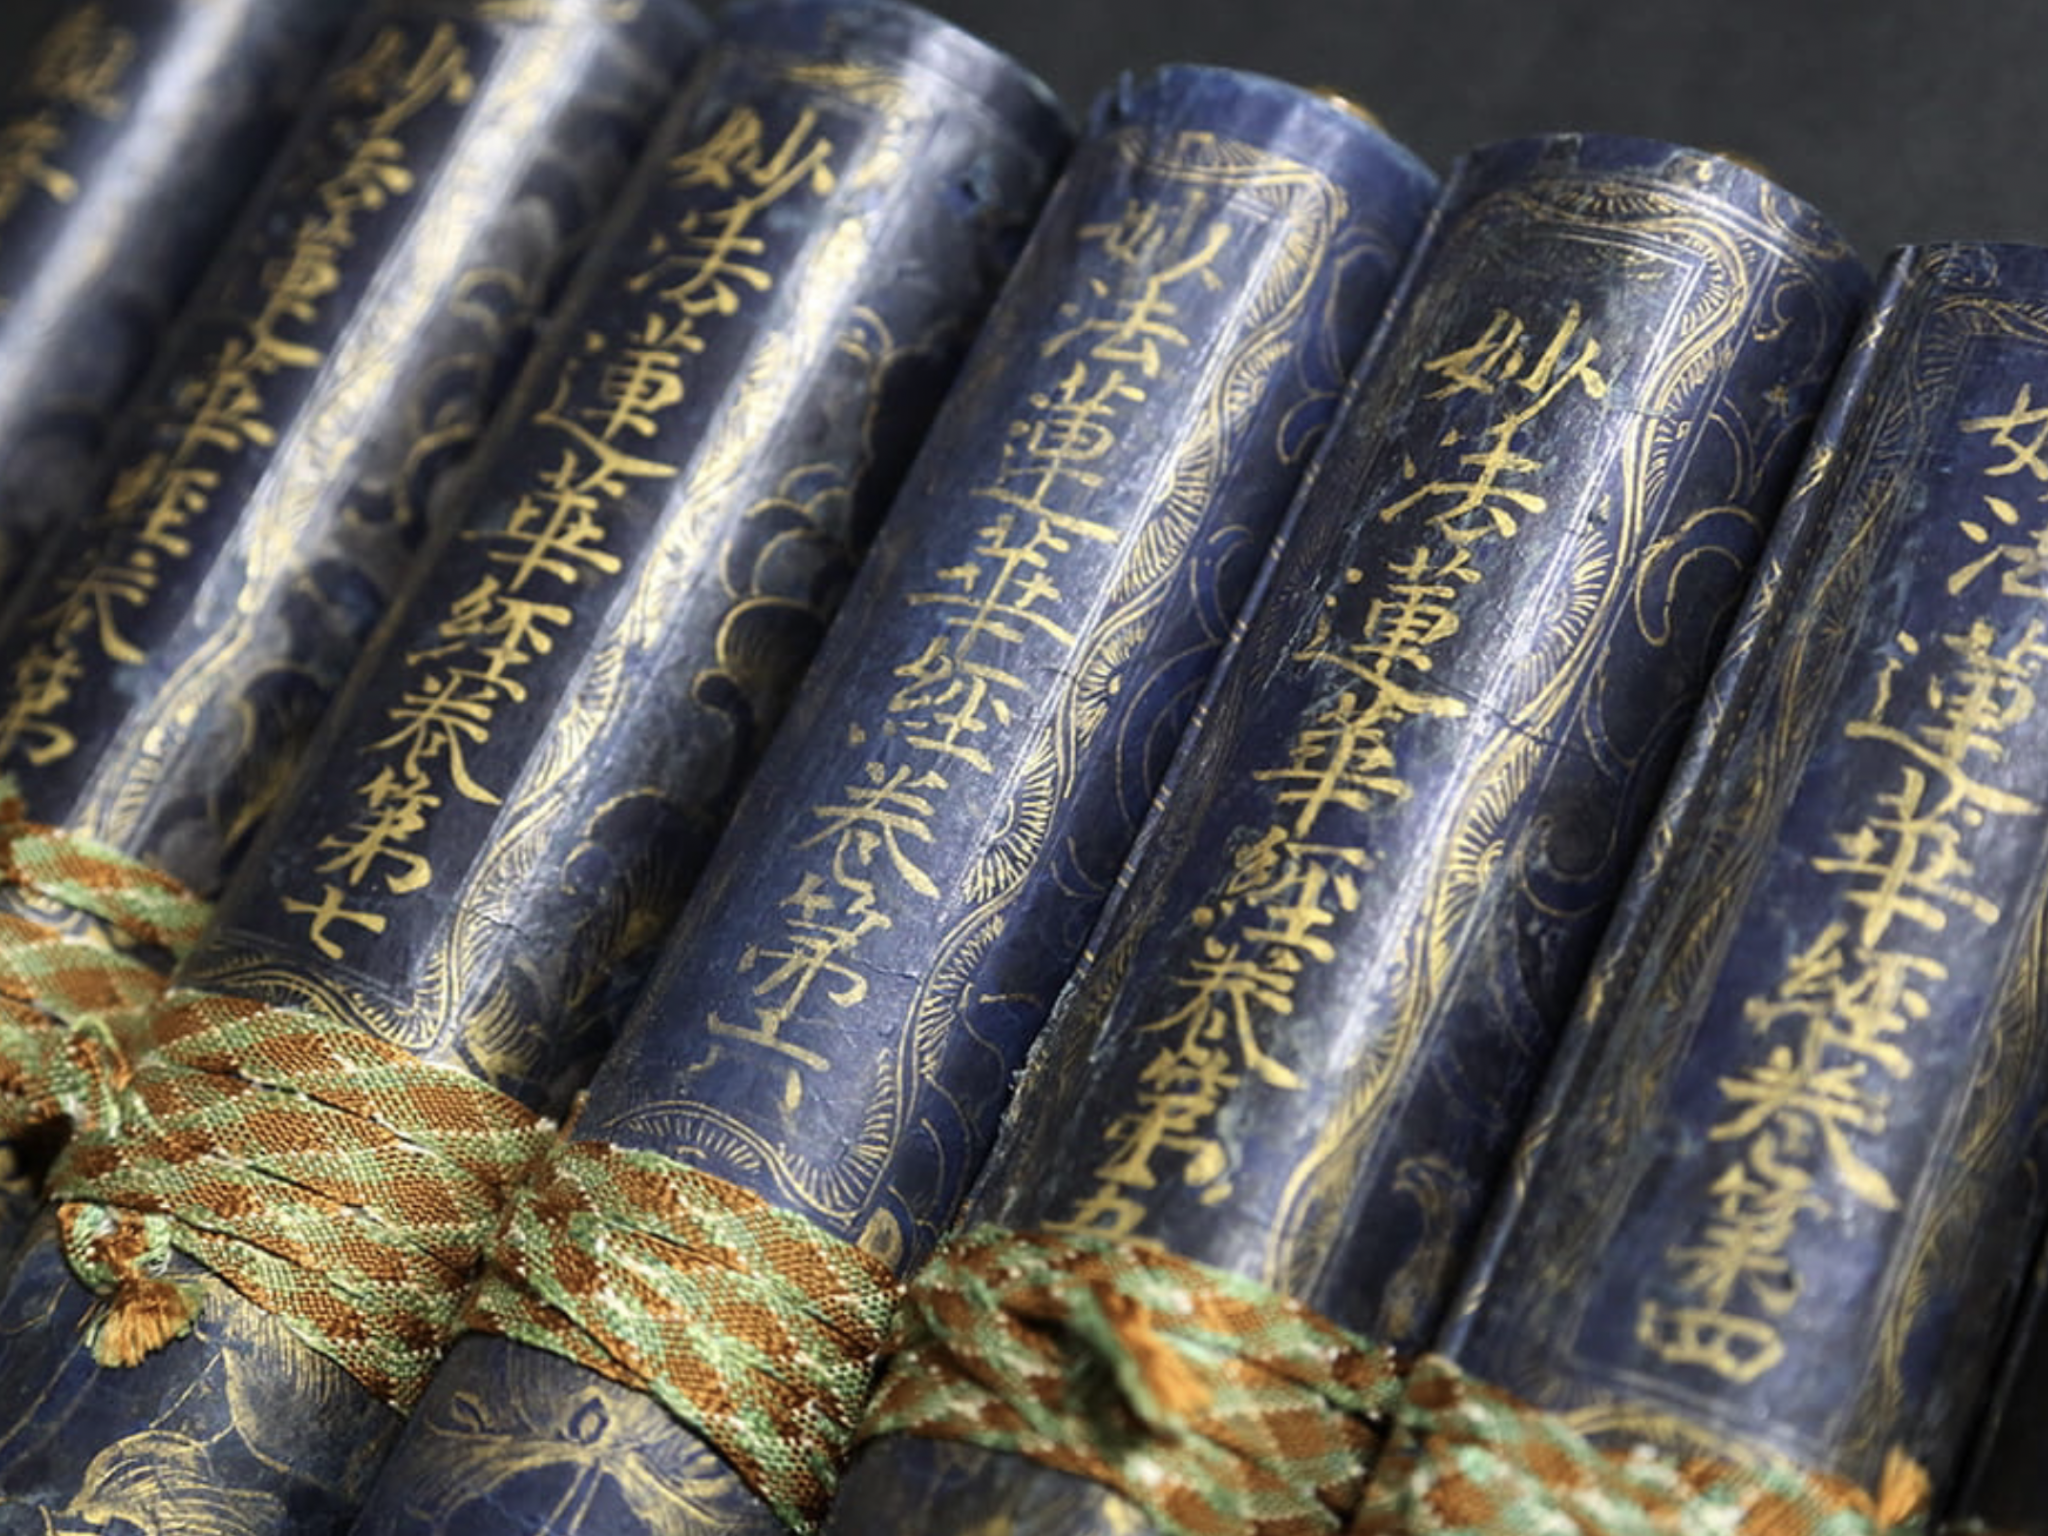 妙法蓮華經卷第四
妙法蓮華經卷第五
妙法蓮華經卷第六
妙法蓮華經卷第七
妙法蓮華經卷第